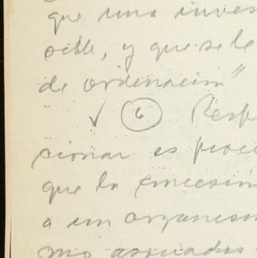 que una inves
ocble, y que se le
de ordenación"
✓ 6 Resp
cionar es proce
que la concesión
a un organism